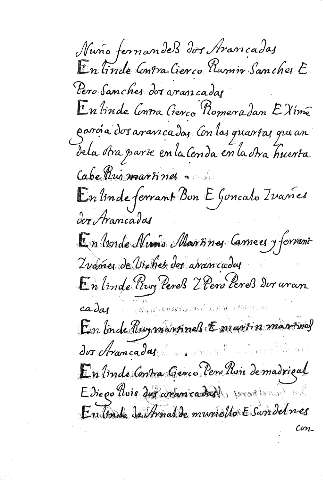 Nuño fernandeß dos Arançadas
En linde Contra Cierco Ramir Sanches E
Pero Sanches dos arancadas
En linde Contra Cierco Romeradan E Xime
garcia dos arancadas Con las quartas que an
dela otra parte en la Senda en la otra huerta
Cabe Ruis martines
En linde ferrant Bon E Goncalo Zuañes
dos Arancadas
En linde Nuño Martines y ferrant
Zuañes de dos arancadas
En linde Ruy Pereß Y Pero Pereß dos aran
cadas
En linde Ruy martineß E martin martines
dos Arancadas
En linde Contra Cierco Pero Ruis de madrigal
E diego Ruis dos arancadas
En linde de Arnal de muriello E
con